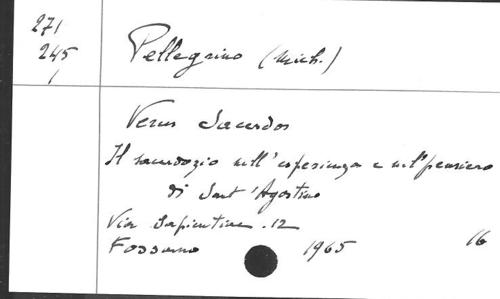 271
245
1
Pellegrino (Mich.)
Verus Sacerdos
Il sacerdozio nell'esperienza e nel pensiero
di Sant'Agostino
Via Sapientiae .12
Fossano 1965 16